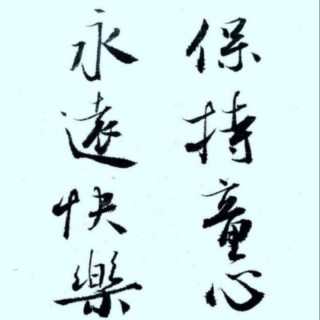 保持童心
永遠快樂